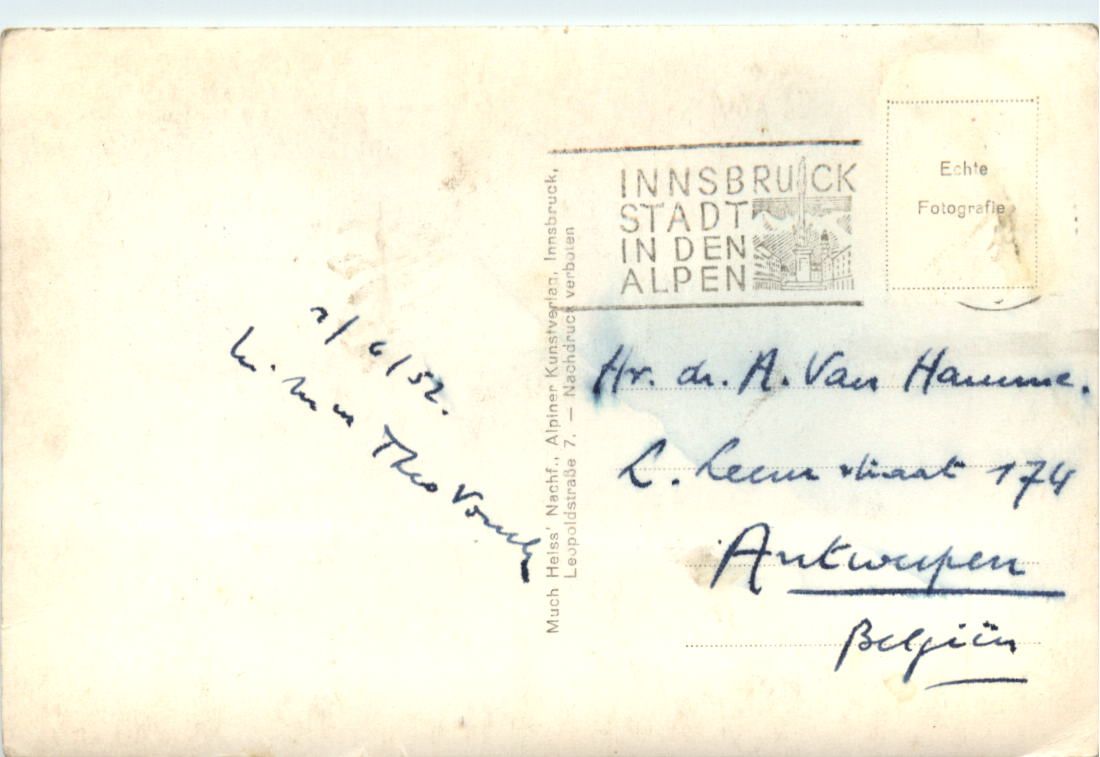 /6/52.
Theo
Much Heiss' Nachf., Alpiner Kunstverlag, Innsbruck,
Leopoldstraße 7. — Nachdruck verboten
INNSBRUCK
STADT
IN DEN
ALPEN
Echte
Fotografie
Hr. dr. A. Van Hamme.
L. Leem straat 174
Antwerpen
België